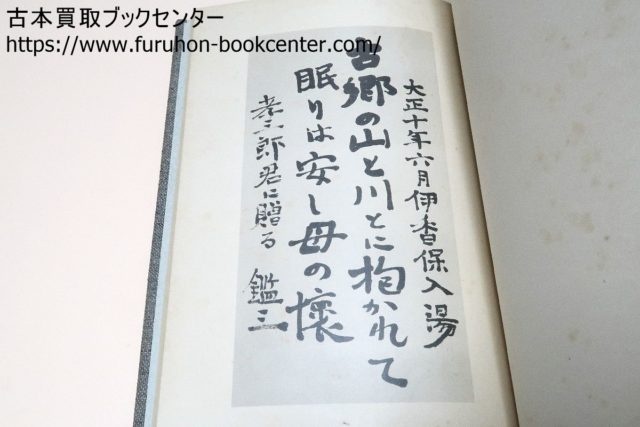 古本買取ブックセンター
https://www.furuhon-bookcenter.com/
大正十年六月伊香保入湯
古郷の山と川とに抱かれて
眠りは安し母の懐
孝三郎君に贈る 鑑三